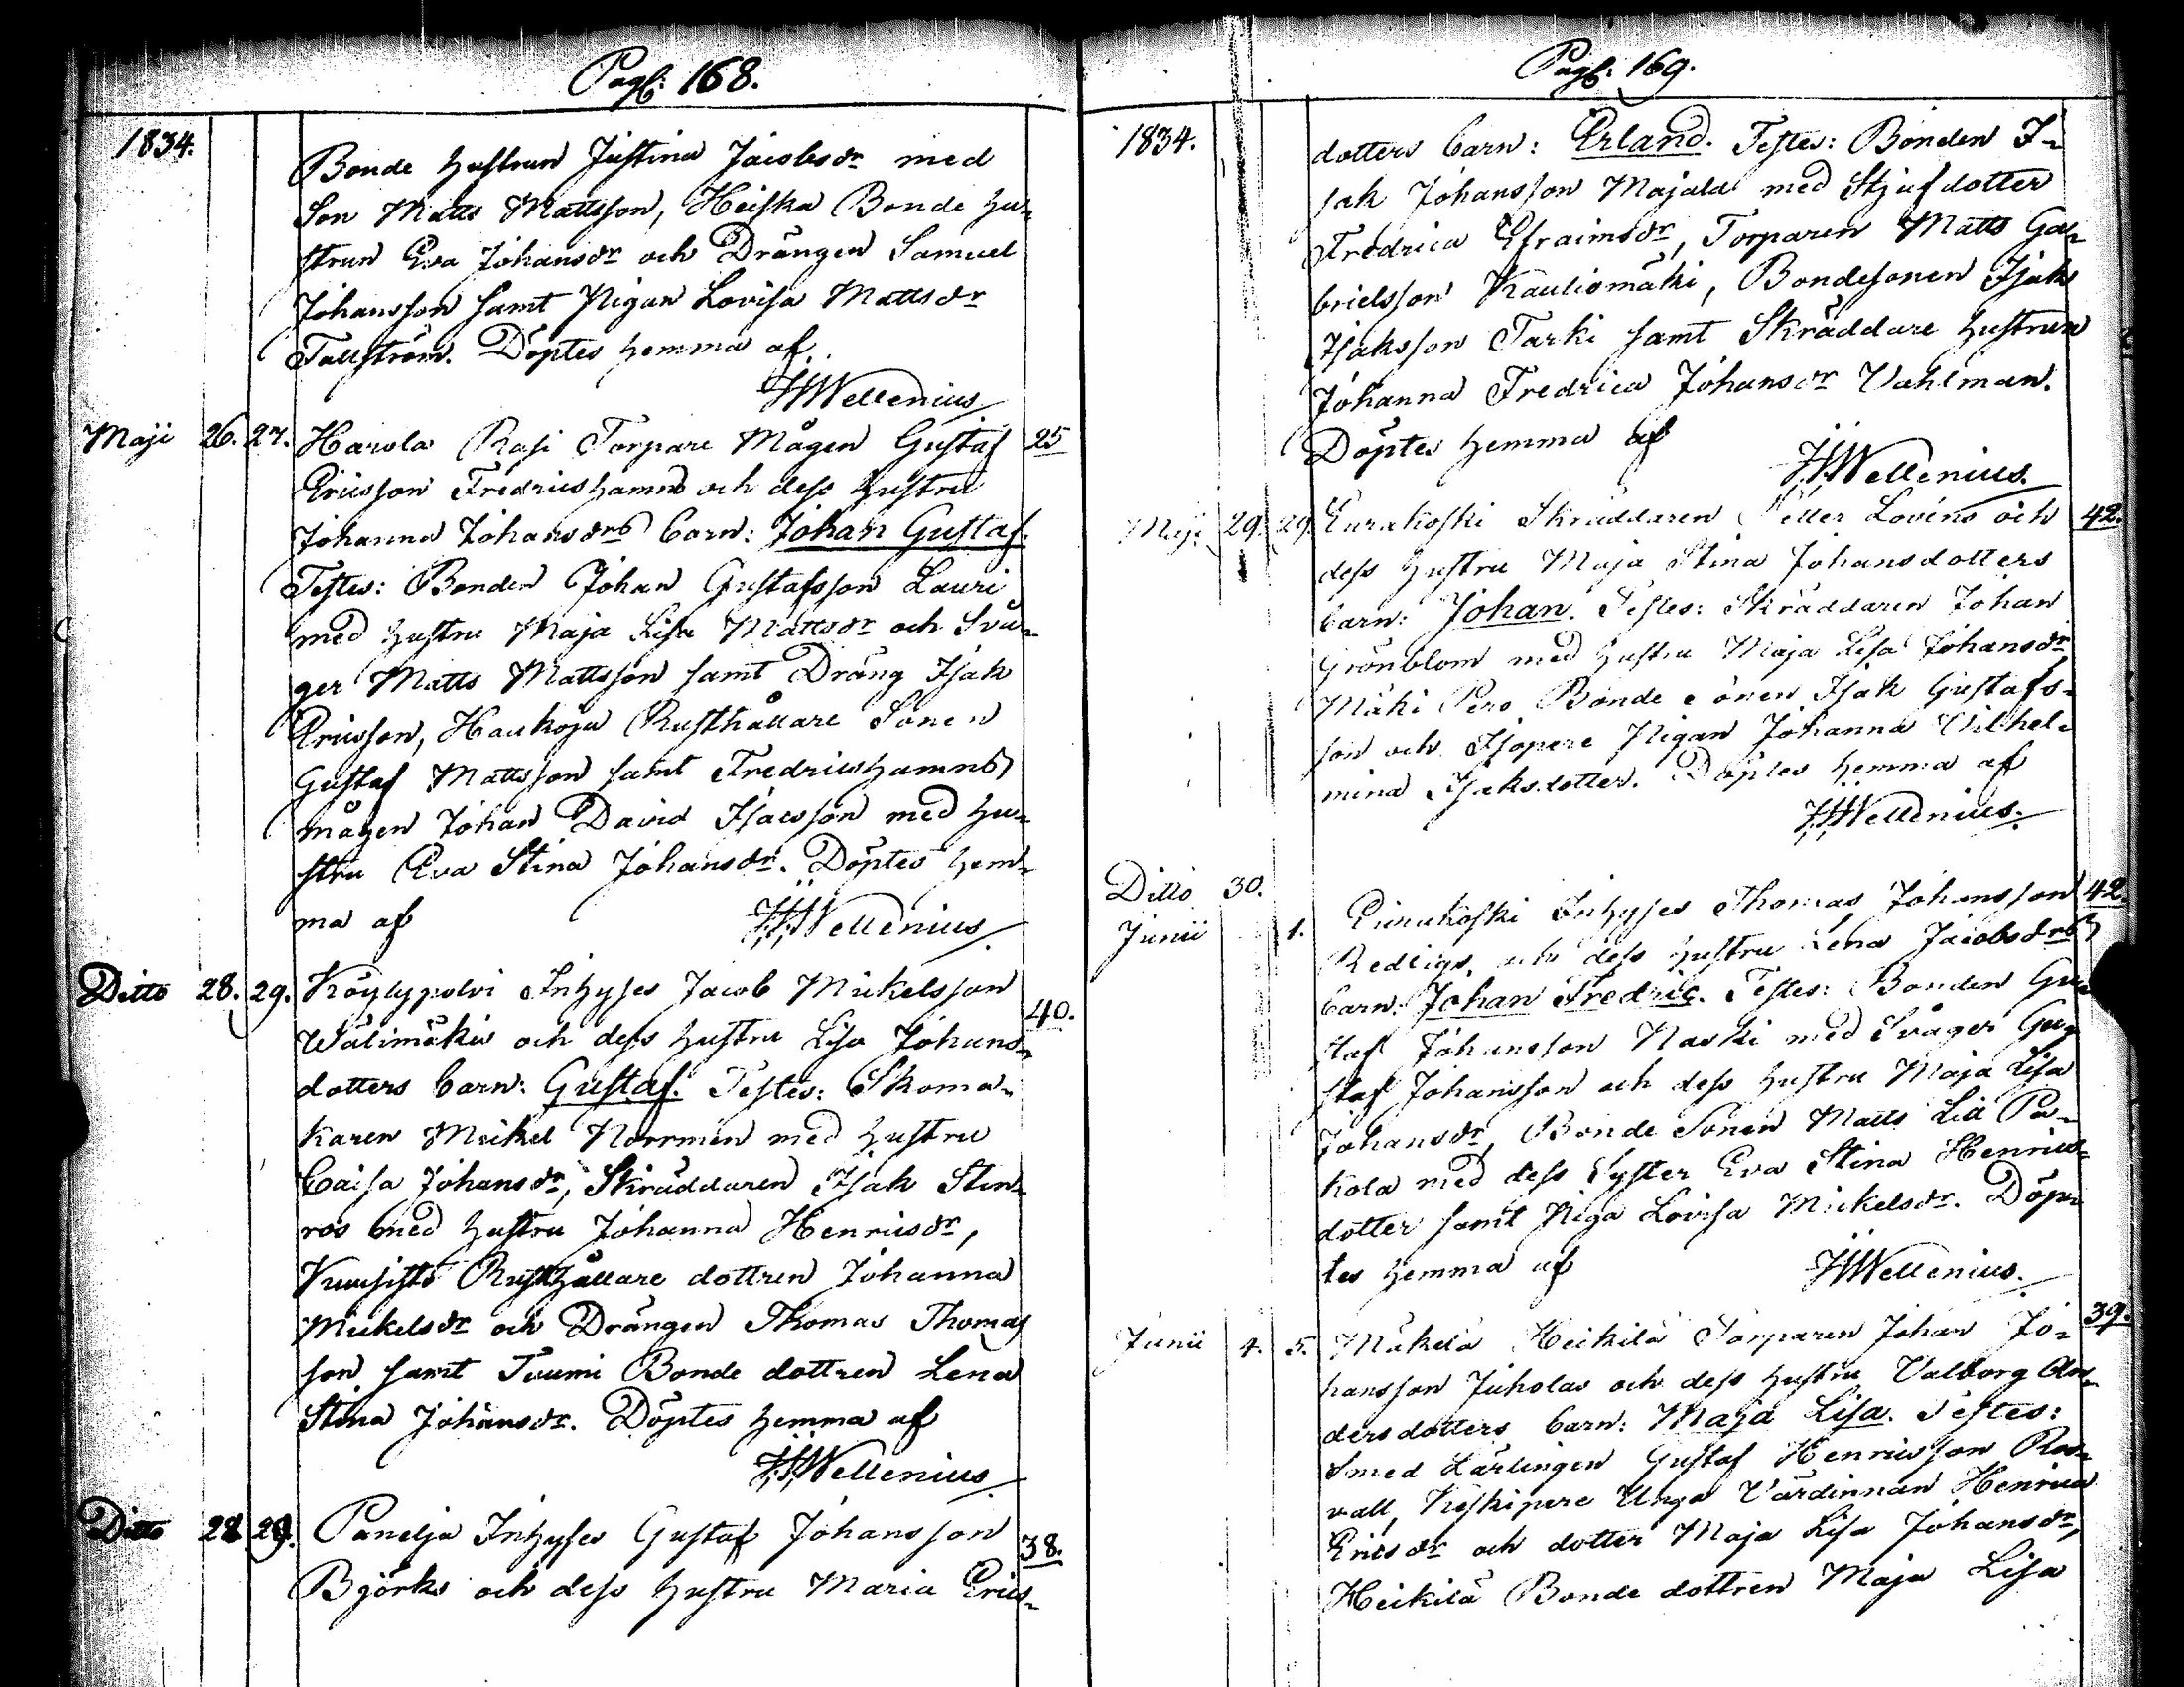 Pag: 168.
1834.
Bonde hustrun Justina Jacobsdr med
Son Matts Mattsson, Heiska Bonde hu-
strun Eva Johansdr och Drängen Samuel
Johansson samt Pigan Lovisa Mattsdr
Tallström. Döptes hemma af
HWellenius
Maji 26. 27. Harola Rasi Torpare Mågen Gustaf 25
Ericsson Fredricshamns och dess hustru
Johanna Johansdrs barn: Johan Gustaf.
Testes: Bonden Johan Gustafsson Lauri
med hustru Maja Lisa Mattsdr och Svå-
ger Matts Mattsson samt Dräng Isak
Ericsson, Haukoja Rusthållare Sonen
Gustaf Mattsson samt Fredricshamns
mågen Johan David Isacsson med hu-
stru Eva Stina Johansdr. Döptes hem-
ma af HWellenius
Ditto 28. 29. Köylypolvi Inhyses Jacob Mickelsson 40.
Wälimäkis och dess hustru Lisa Johans-
dotters barn: Gustaf. Testes: Skoma-
karen Mickel Norrmen med hustru
Caisa Johansdr, Skräddaren Isak Sten-
ros med hustru Johanna Henricsdr,
Kuusisto Rusthållare dottren Johanna
Mickelsdr och Drängen Thomas Thomas
son samt Tuomi Bonde dottren Lena
Stina Johansdr. Döptes hemma af
HWellenius
Ditto 28 29. Panelja Inhyses Gustaf Johansson 38.
Björks och dess hustru Maria Erics-
Pag: 169.
1834.
dotters barn: Erland. Testes: Bonden I-
sak Johansson Majala med Stjufdotter
Fredrica Efraimsdr, Torparen Matts Ga-
brielsson Kauliomäki, Bondesonen Isak
Isaksson Tarki samt Skräddare hustrun
Johanna Fredrica Johansdr Vahlman.
Döptes hemma af
HWellenius.
Maji 29. 29. Eurakoski Skräddaren Peller Lovéns och 42.
dess hustru Maja Stina Johansdotters
barn: Johan. Testes: Skräddaren Johan
Grönblom med hustru Maja Lisa Johansdr
Mäki Pero Bonde sonen Isak Gustafs-
son och Isopere Pigan Johanna Vilhel-
mina Isaksdotter. Döptes hemma af
HWellenius.
Ditto 30.
Junii 1. Inhyses Thomas Johansson 42.
Redligs och dess hustru Lena Jacobsdrs
barn: Johan Fredric. Testes: Bonden Gu-
staf Johansson Naski med Svåger Gu-
staf Johansson och dess hustru Maja Lisa
Johansdr, Bonde Sonen Matts Lill Pa-
kola med dess Syster Eva Stina Henrics-
dotter samt Piga Lovisa Mickelsdr. Döp-
tes hemma af HWellenius.
Junii 4. 5. Mäkelä Heikilä Torparen Johan Jo- 39.
hansson Juholas och dess hustru Valborg An-
dersdotters barn: Maja Lisa. Testes:
Smed Lärlingen Gustaf Henricsson Ros-
vall, Keskipere Unga Värdinnan Henrica
Ericsdr och dotter Maja Lisa Johansdr,
Heikilä Bonde dottren Maja Lisa